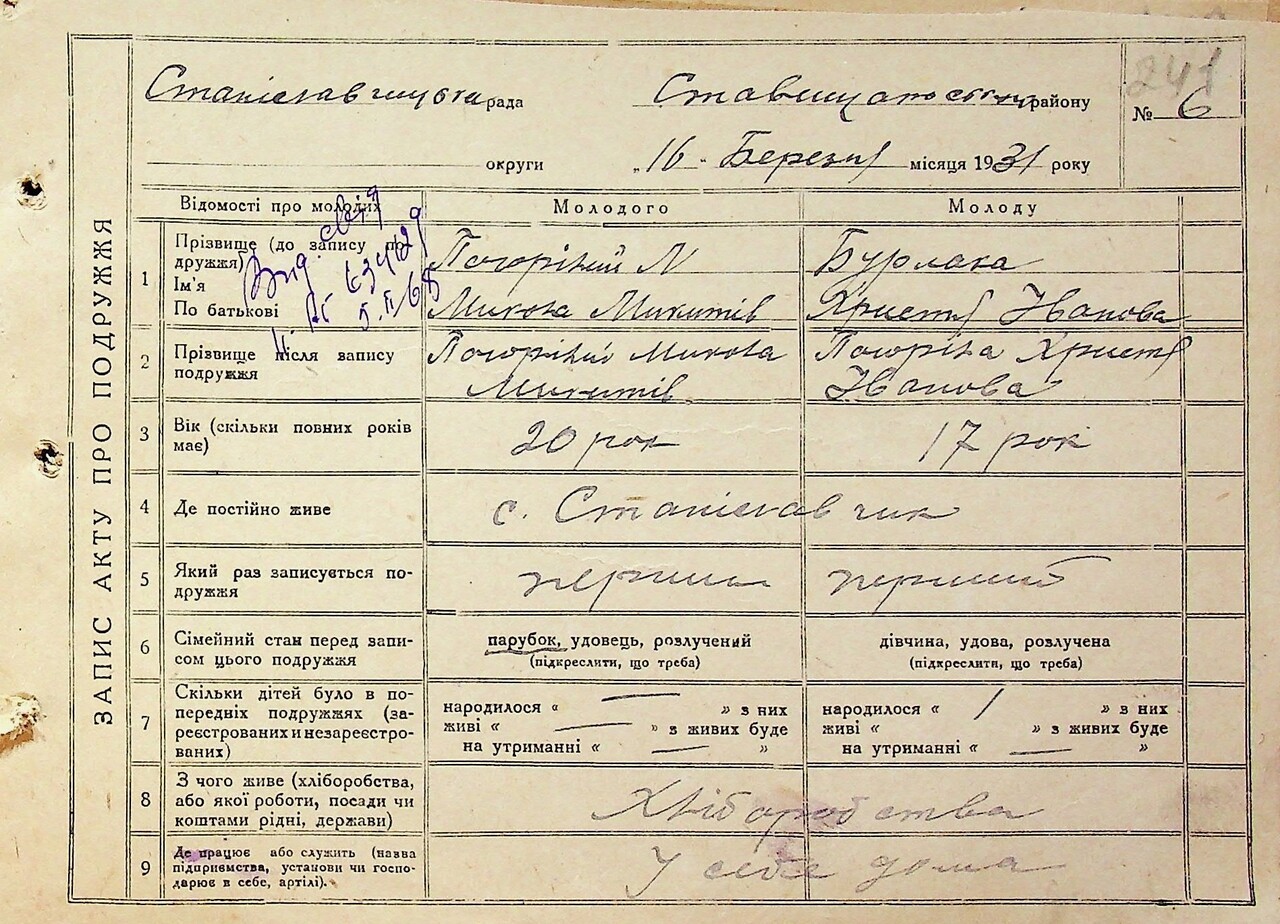 ЗАПИС АКТУ ПРО ПОДРУЖЖЯ
241
рада району № 6
округи „16" Березня місяця 1931 року
Відомості про молодих Молодого Молоду
1 Прізвище (до запису по-
дружжя)
Ім'я
По батькові
Погорілий М
Микола Микитів
Бурлака
Христя Іванова
5.II 68
2 Прізвище після запису
подружжя
Погорілий Микола
Микитів
Погоріла Христя
Іванова
3 Вік (скільки повних років
має)
20 рок 17 рок
4 Де постійно живе с. Станіславчик
5 Який раз записується по-
дружжя
перший перший
6 Сімейний стан перед запи-
сом цього подружжя
парубок, удовець, розлучений
(підкреслити, що треба)
дівчина, удова, розлучена
(підкреслити, що треба)
7 Скільки дітей було в по-
передніх подружжях (за-
реєстрованих и незареєстро-
ваних)
народилося « — » з них
живі « — » з живих буде
на утриманні « — »
народилося « / » в них
живі « » з живих буде
на утриманні « — »
8 З чого живе (хліборобства,
або якої роботи, посади чи
коштами рідні, держави)
Хліборобства
9 Де працює або служить (назва
підприємства, установи чи госпо-
дарює в себе, артілі).
У себе дома